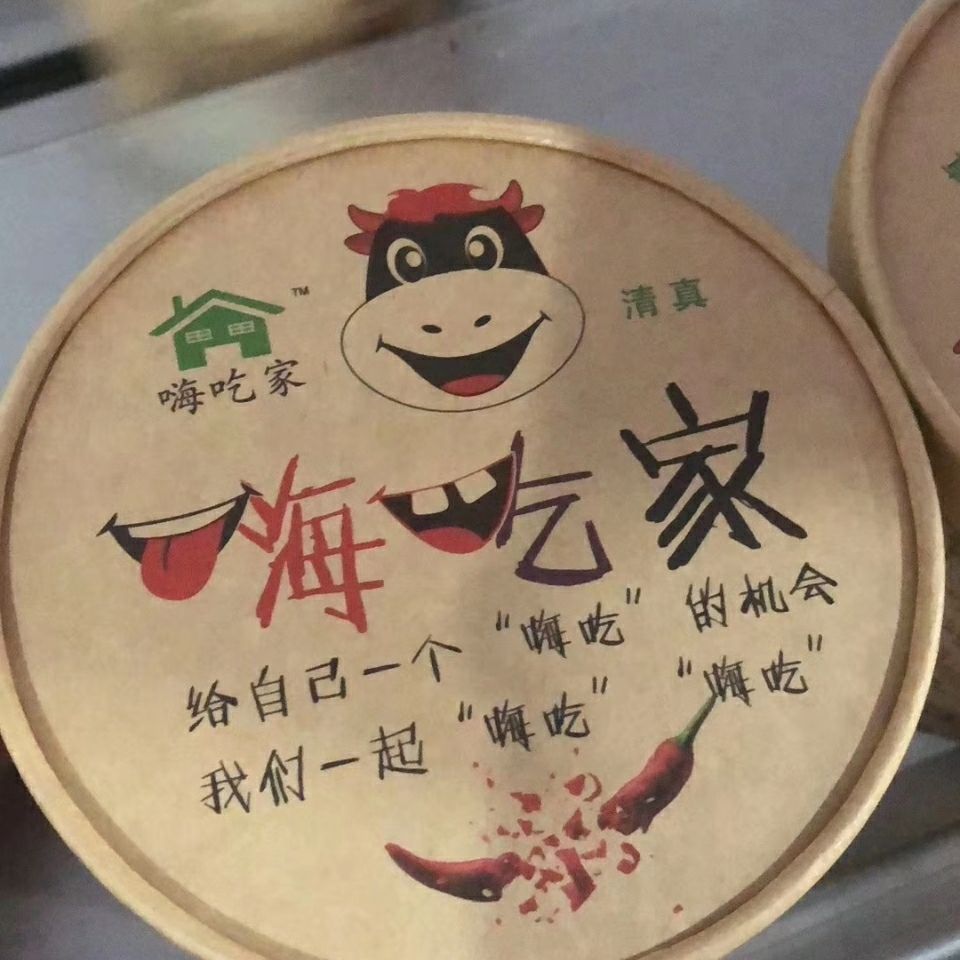 TM
清真
嗨吃家
嗨吃家
给自己一个“嗨吃”的机会
我们一起“嗨吃”“嗨吃”